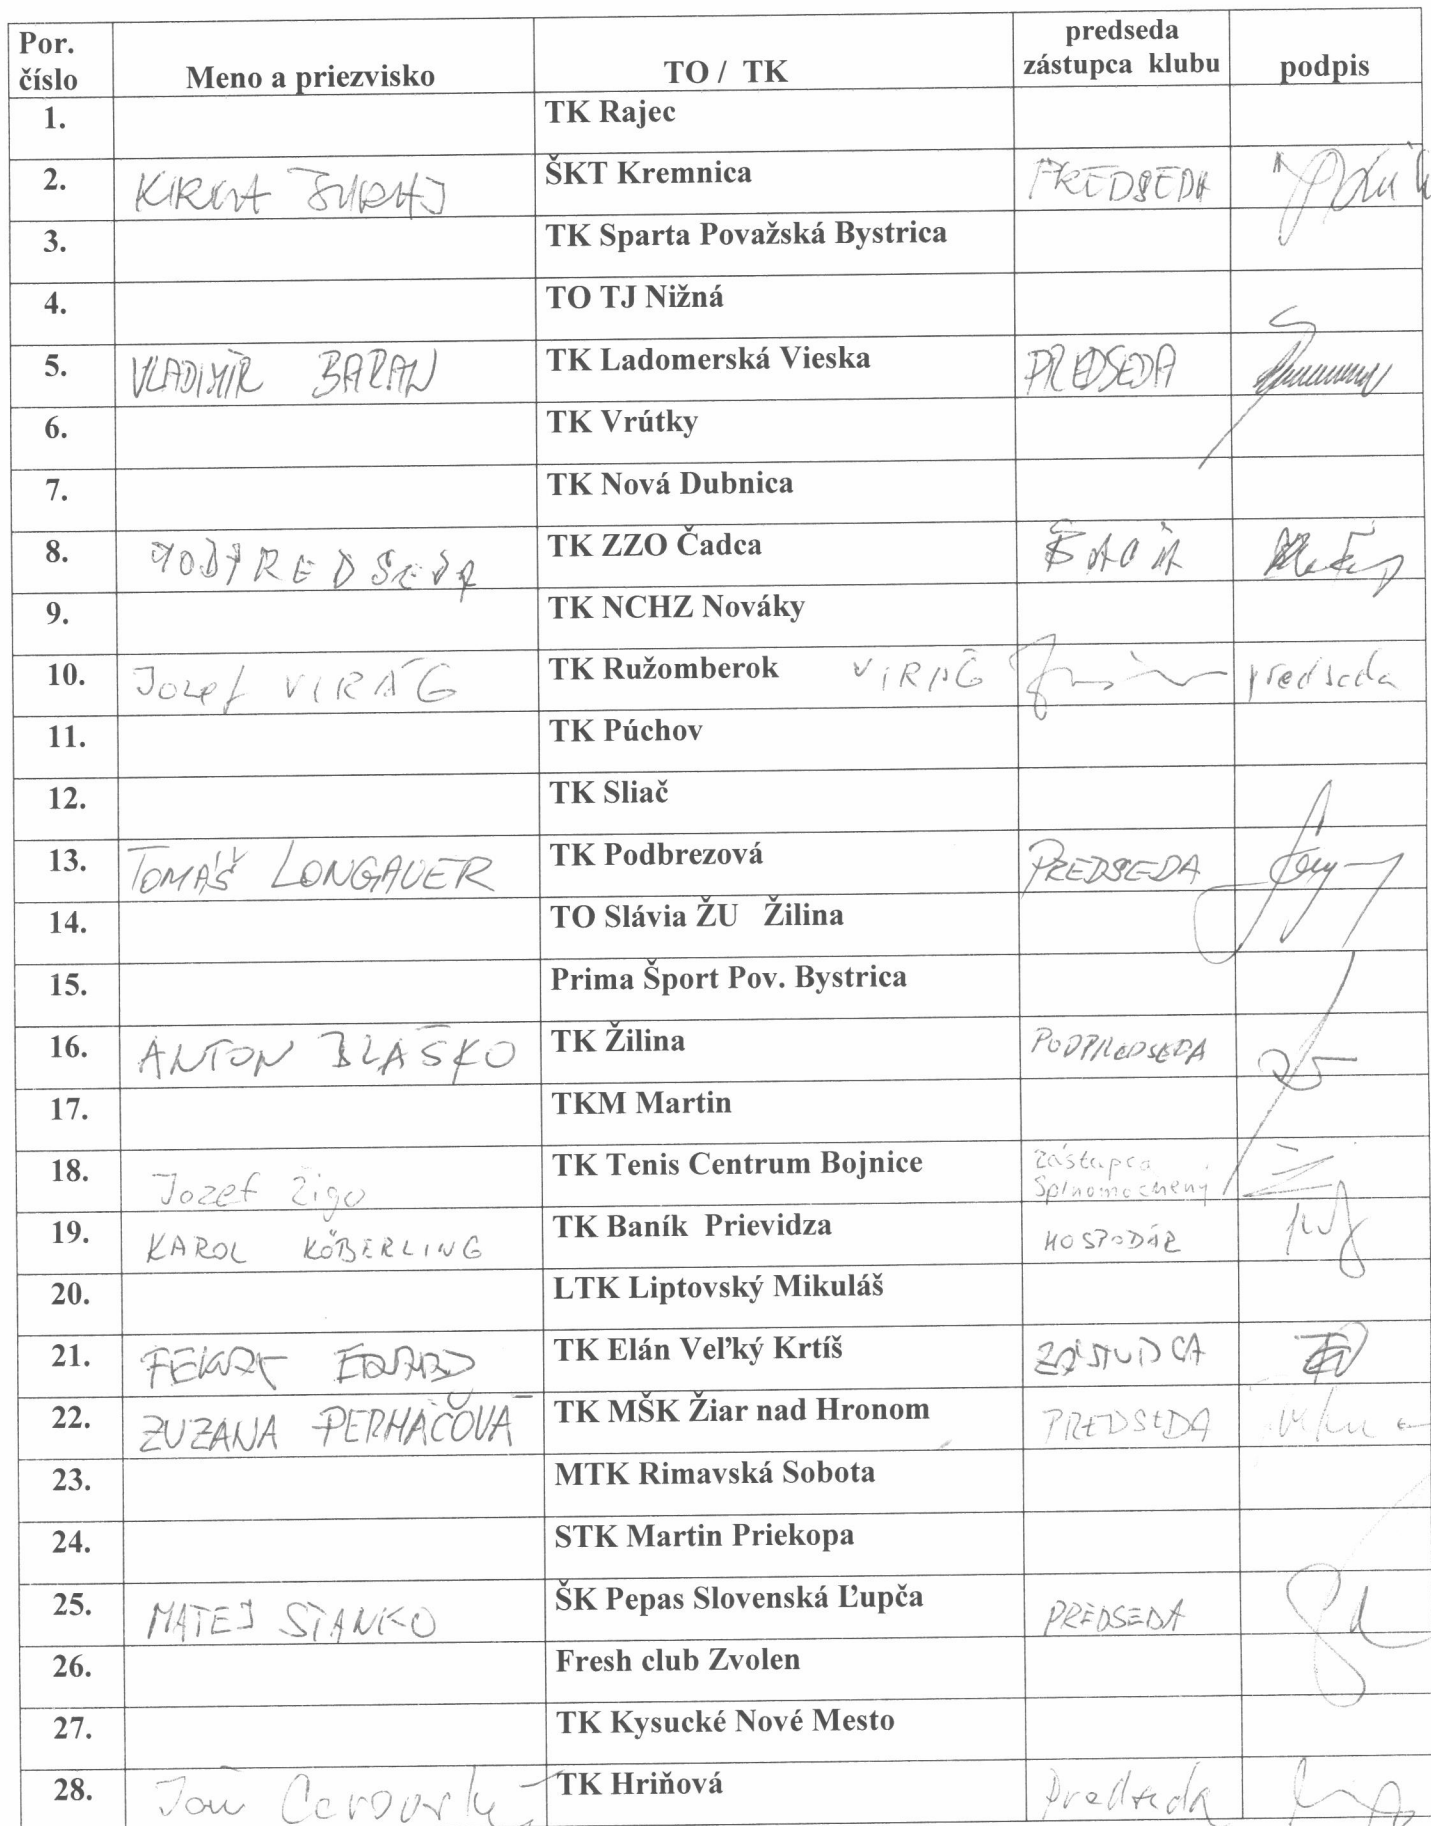 Por. číslo Meno a priezvisko TO / TK predseda zástupca klubu podpis
1. TK Rajec
2. JURAJ ŠKT Kremnica PREDSEDA
3. TK Sparta Považská Bystrica
4. TO TJ Nižná
5. VLADIMÍR BARAN TK Ladomerská Vieska PREDSEDA
6. TK Vrútky
7. TK Nová Dubnica
8. PODPREDSEDA TK ZZO Čadca
9. TK NCHZ Nováky
10. Jozef VIRÁG TK Ružomberok VIRÁG predseda
11. TK Púchov
12. TK Sliač
13. TOMÁŠ LONGAUER TK Podbrezová PREDSEDA
14. TO Slávia ŽU Žilina
15. Prima Šport Pov. Bystrica
16. ANTON BLAŠKO TK Žilina PODPREDSEDA
17. TKM Martin
18. Jozef Žigo TK Tenis Centrum Bojnice zástupca splnomocnený
19. KAROL KÖBERLING TK Baník Prievidza HOSPODÁR
20. LTK Liptovský Mikuláš
21. TK Elán Veľký Krtíš ZÁSTUPCA
22. ZUZANA PERHÁČOVÁ TK MŠK Žiar nad Hronom PREDSEDA
23. MTK Rimavská Sobota
24. STK Martin Priekopa
25. MATEJ STANKO ŠK Pepas Slovenská Ľupča PREDSEDA
26. Fresh club Zvolen
27. TK Kysucké Nové Mesto
28. TK Hriňová Predseda